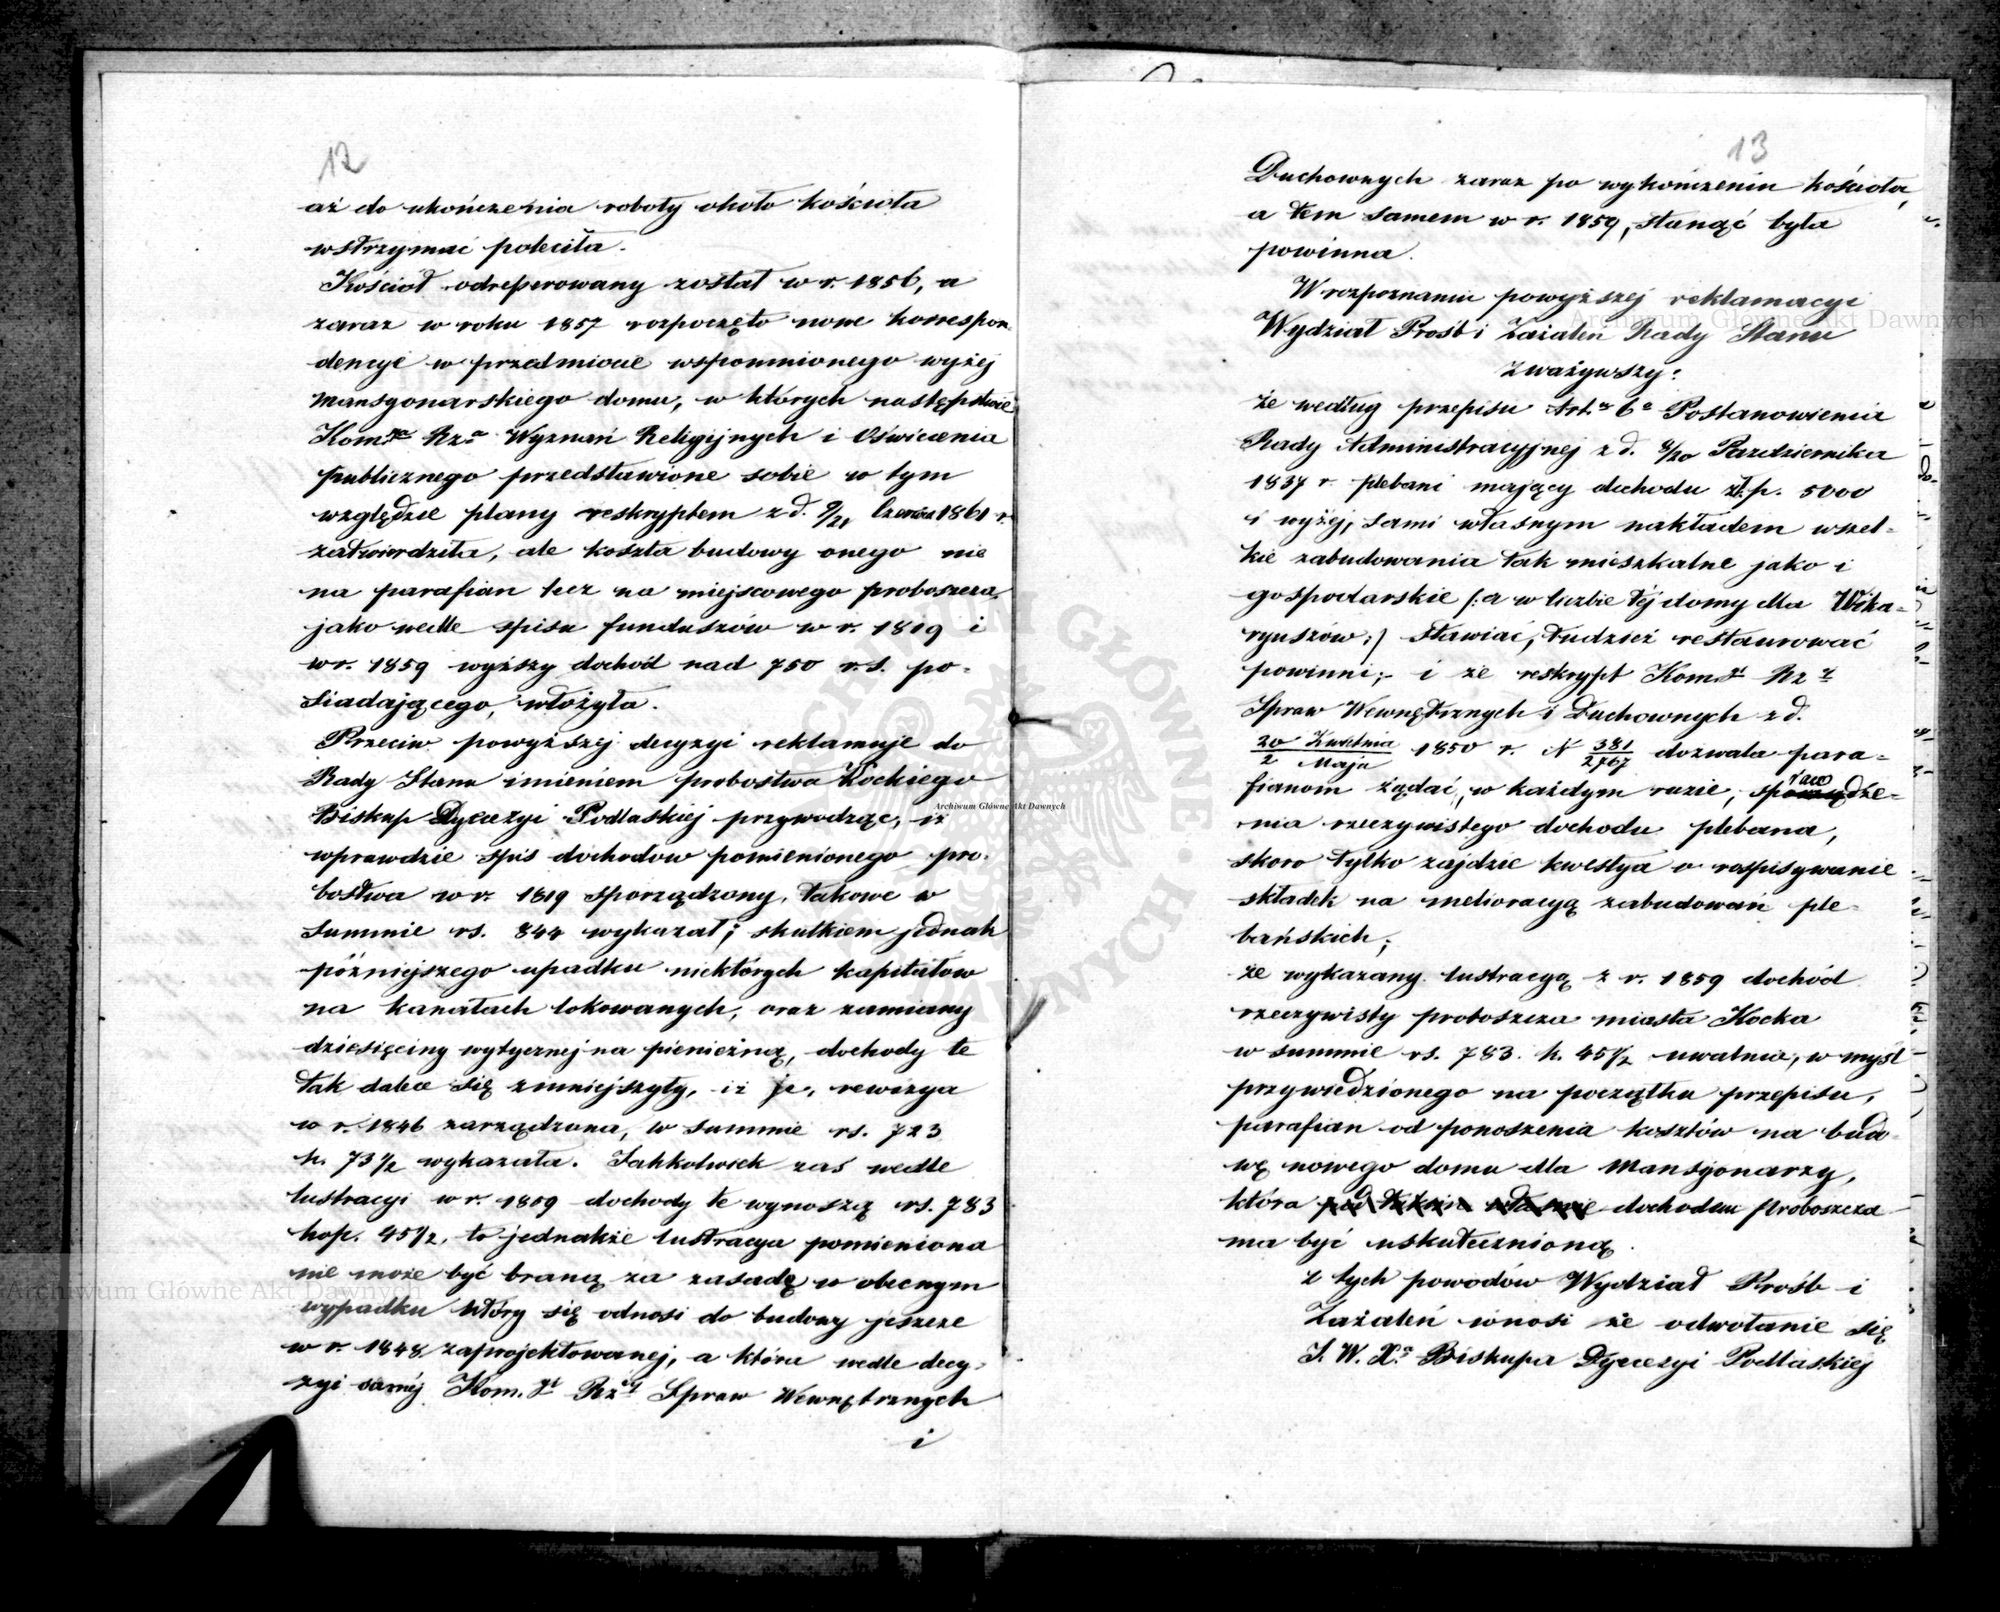 12
aż do ukończenia roboty około kościoła
wstrzymać poleciła.
Kościół odreperowany został w r. 1856, a
zaraz w roku 1857 rozpoczęto nowe korrespon-
dencye w przedmiocie wspomnionego wyżej
mansyonarskiego domu, w których następstwie
Kom.ya Rz.a Wyznań Religijnych i Oświecenia
publicznego przedstawione sobie w tym
względzie plany reskryptem z d. 9/21 Czerwca 1861 r.
zatwierdziła, ale koszta budowy onego nie
na parafian lecz na miejscowego proboszcza,
jako wedle spisu funduszów w r. 1819 i
w r. 1859 wyższy dochód nad 750 r.s. po-
siadającego, włożyła.
Przeciw powyższej decyzyi reklamuje do
Rady Stanu imieniem probostwa Kockiego
Biskup Dyecezyi Podlaskiej przywodząc, iż
wprawdzie spis dochodów pomienionego pro-
bostwa w r. 1819 sporządzony, takowe w
summie rs. 844 wykazał; skutkiem jednak
późniejszego upadku niektórych kapitałów
na kanałach lokowanych, oraz zamiany
dziesięciny wytycznej na pieniężną, dochody te
tak dalece się zmniejszyły, iż je, rewizya
w r. 1846 zarządzona, w summie rs. 723
k. 73 1/2 wykazała. Jakkolwiek zaś wedle
lustracyi w r. 1859 dochody te wynoszą rs. 783
kop. 45 1/2, to jednakże lustracya pomieniona
nie może być braną za zasadę w obecnym
wypadku który się odnosi do budowy jeszcze
w r. 1848 zaprojektowanej, a która wedle decy-
zyi saméj Kom. yi Rz.ej Spraw Wewnętrznych
i
13
Duchownych zaraz po wykończeniu kościoła,
a tem samem w r. 1859, stanąć była
powinna.
W rozpoznaniu powyższej reklamacyi
Wydział Prośb i Zażaleń Rady Stanu
zważywszy:
że według przepisu Art.u 6o Postanowienia
Rady Administracyjnej z d. 8/20 Pazdziernika
1837 r. plebani mający dochodu złp. 5000
i wyżej, sami własnym nakładem wszel-
kie zabudowania tak mieszkalne jako i
gospodarskie /: a w liczbie téj domy dla Wika-
ryuszów :/ stawiać, tudzież restaurować
powinni; - i że reskrypt Kom.yi Rz.ej
Spraw Wewnętrznych i Duchownych z d.
20 Kwietnia / 2 Maja 1850 r. N 381/2767 dozwala para-
fianom żądać, w każdym razie, sprawdze-
nia rzeczywistego dochodu plebana,
skoro tylko zajdzie kwestya o rospisywanie
składek na melioracyą zabudowań ple-
bańskich;
że wykazany lustracyą z r. 1859 dochód
rzeczywisty proboszcza miasta Kocka
w summie rs. 783. k. 45 1/2 uwalnia, w myśl
przywiedzionego na początku przepisu,
parafian od ponoszenia kosztów na budo-
wę nowego domu dla Mansyonarzy,
która dochodem Proboszcza
ma być uskutecznioną.
z tych powodów Wydział Prośb i
Zażaleń wnosi że odwołanie się
J. W. X.a Biskupa Dyecezyi Podlaskiej
Archiwum Główne Akt Dawnych
Archiwum Główne Akt Dawnych
Archiwum Główne Akt Dawnych
ARCHIWUM GŁÓWNE AKT DAWNYCH